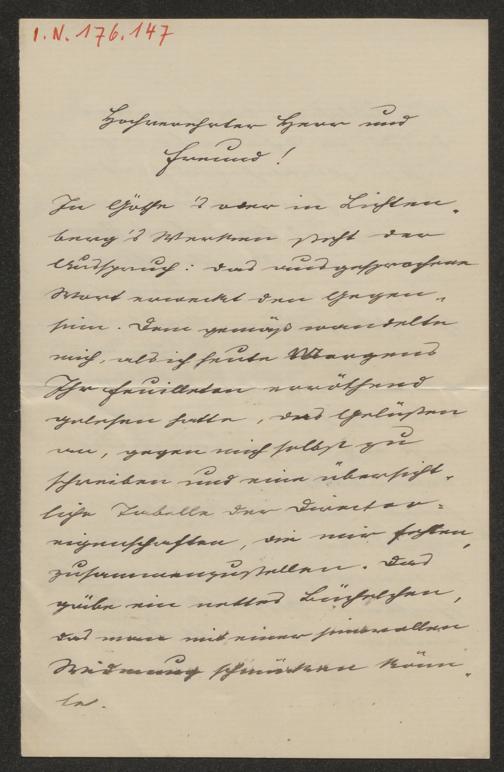 I. N. 176.147
Hochverehrter Herr und
Freund!
In Göthe's oder in Lichten-
berg's Werken steht der
Ausspruch: das ausgesprochene
Wort erweckt den Gegen-
sinn. Dem gemäß wandelte
mich, als ich heute Morgens
Ihr Feuilleton erröthend
gelesen hatte, das Gelüsten
an, gegen mich selbst zu
schreiben und eine übersicht-
liche Tabelle der Director-
eigenschaften, die mir fehlen,
zusammenzustellen. Das
gäbe ein nettes Büchelchen,
das man mit einer sinnvollen
Widmung schmücken könn-
te.